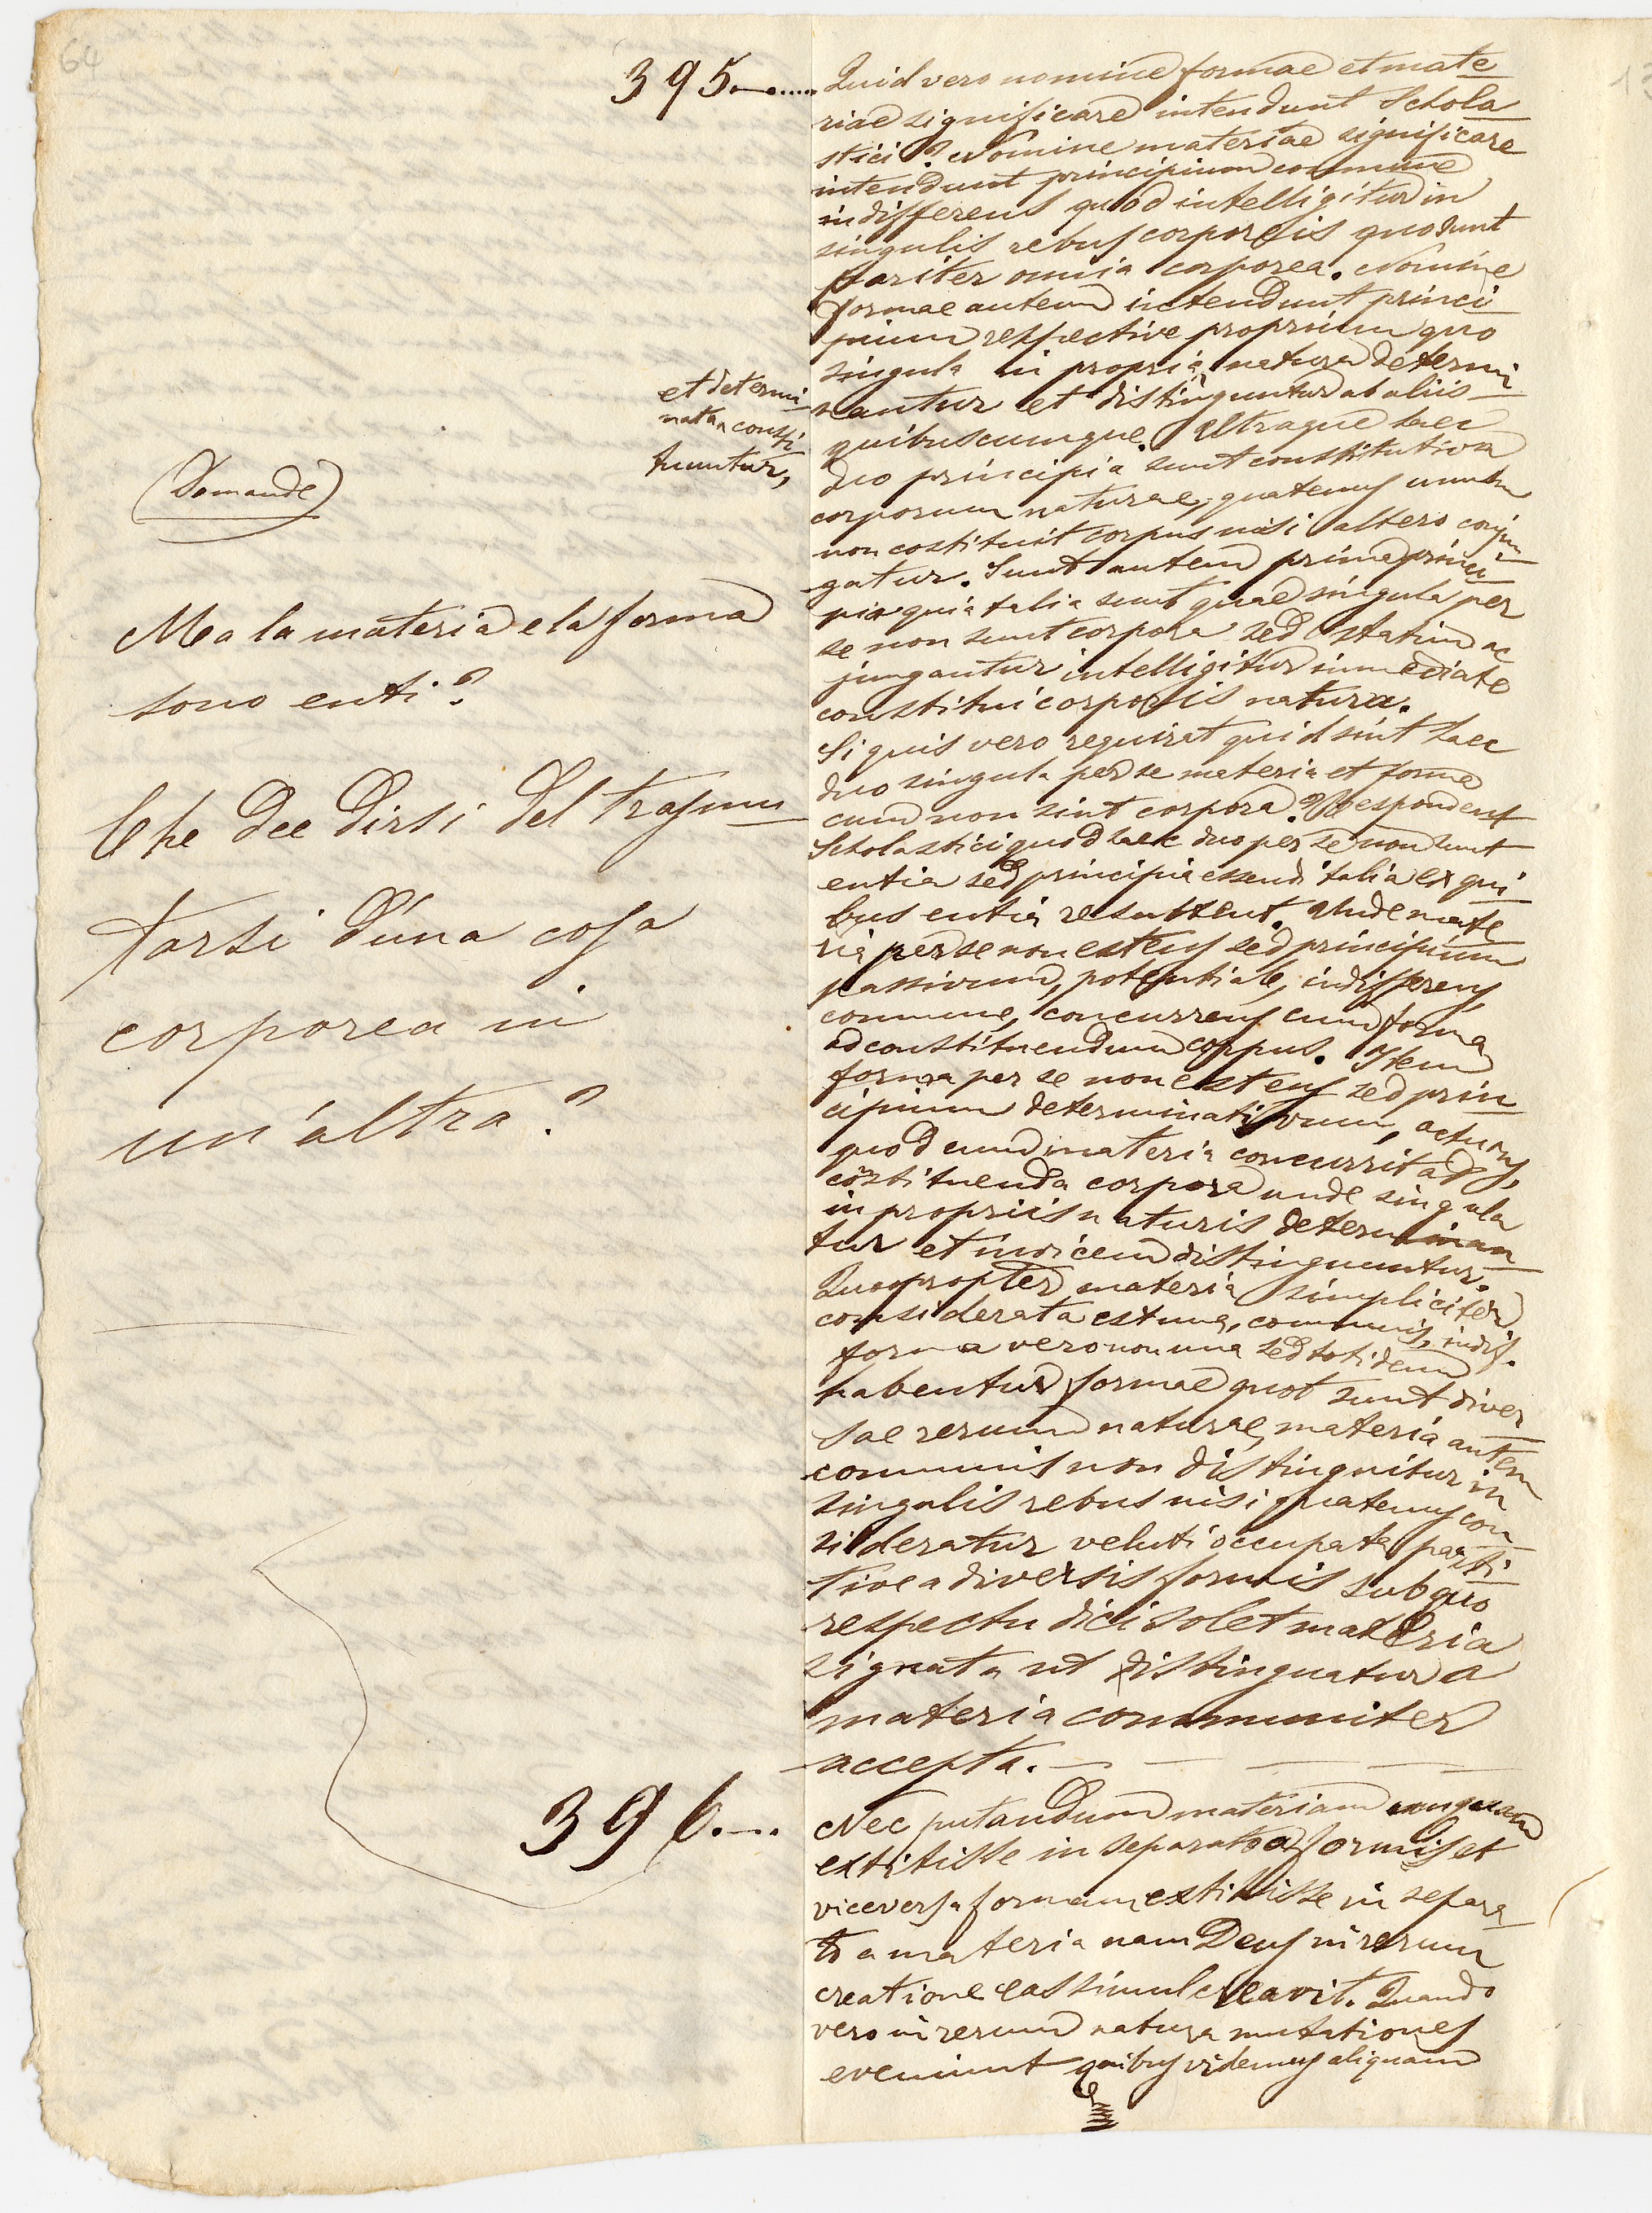 64
395
Quid vero nomine formae et mate
riae significare intendunt Schola
stici? Nomine materiae significare
intendunt principium commune
indifferens quod intelligitur in
singulis rebus corporeis quo sunt
pariter omnia corporea. Nomine
formae autem intendunt princi
pium respective proprium quo
singula in propria natura determi
nantur et distinguuntur ab aliis
quibuscumque. Utraque haec
duo principia sunt constitutiva
corporum naturae, quatenus unum
non costituit corpus nisi altero conjun
gatur. Sunt autem prima princi
pia quia talia sunt quae singula per
se non sunt corpora sed statim ac
jungantur intelligitur immediate
constitui corporis natura.
Si quis vero requirat quid sint haec
duo singula per se materia et forma
cum non sint corpora? Respondent
Scholastici quod haec duo per se non sunt
entia sed principia essendi talia ex qui
bus entia resultent. Unde mate
ria per se non est ens sed principium
passivum, potentiale, indifferens,
commune, concurrens cum forma
ad constituendum corpus. Item
forma per se non est ens sed prin
cipium determinativum, actuans,
quod cum materia concurrit ad
costituenda corpora unde singula
in propriis naturis determinan
tur et invicem distinguuntur.
Quapropter materia simpliciter
considerata est una, communis, indif.
forma vero non una sed totidem
habentur formae quot sunt diver
sae rerum naturae, materia autem
communis non distinguitur in
singulis rebus nisi quatenus con
sideratur veluti occupata parti
tive a diversis formis sub quo
respectu dici solet materia
signata ut distinguatur a
materia communiter
accepta.
et determi
nata consti
tuuntur,
(Domande)
Ma la materia e la forma
sono enti?
Che dee dirsi del trasmu
tarsi d'una cosa
corporea in
un'altra?
396
Nec putandum materiam unquam
extitisse in separato a formis et
viceversa formam extitisse in separa
to a materia nam Deus in rerum
creatione eas simul creavit. Quando
vero in rerum natura mutationes
eveniunt quibus videmus aliquam